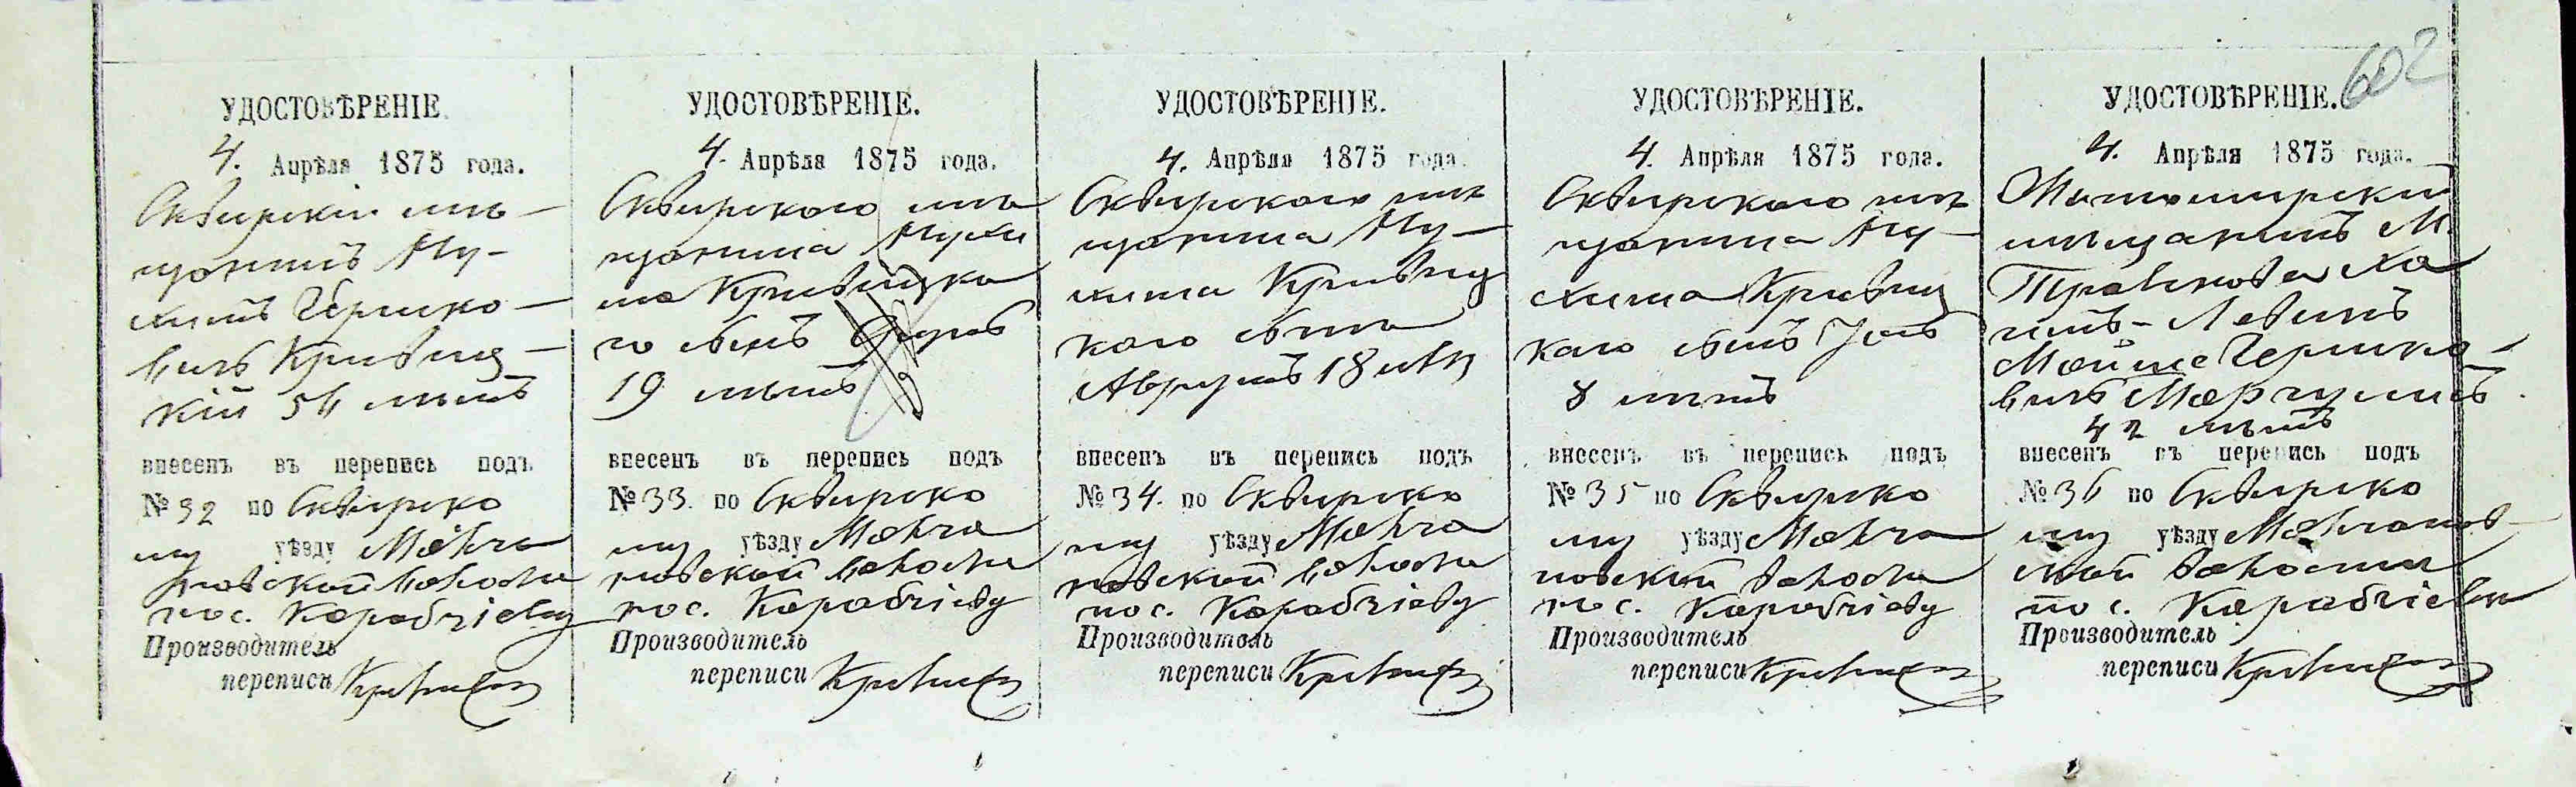 602
УДОСТОВѢРЕНІЕ.
4. Апрѣля 1875 года.
Сквирскій мѣ-
щанинъ Ну-
химъ Гершко-
вичъ Кривиц-
кій 54 лѣтъ
внесенъ въ перепись подъ
№ 32 по Сквирско
му уѣзду Молча
новской волости
по с. Карабчіеву
Производитель
переписи
УДОСТОВѢРЕНІЕ.
4. Апрѣля 1875 года.
Сквирскаго мѣ
щанина Нухи
ма Кривицка
го сынъ
19 лѣтъ
внесенъ въ перепись подъ
№ 33. по Сквирско
му уѣзду Молча
новской волости
по с. Карабчіеву
Производитель
переписи
УДОСТОВѢРЕНІЕ.
4. Апрѣля 1875 года.
Сквирскаго мѣ
щанина Ну-
хима Кривиц
каго сынъ
18 лѣтъ
внесенъ въ перепись подъ
№ 34. по Сквирско
му уѣзду Молча
новской волости
по с. Карабчіеву
Производитель
переписи
УДОСТОВѢРЕНІЕ.
4. Апрѣля 1875 года.
Сквирскаго мѣ
щанина Ну-
хима Кривиц
каго сынъ Іось
8 лѣтъ
внесенъ въ перепись подъ
№ 35 по Сквирско
му уѣзду Молча
новской волости
по с. Карабчіеву
Производитель
переписи
УДОСТОВѢРЕНІЕ.
4. Апрѣля 1875 года.
Житомирскій
мѣщанинъ М.
Троянова Ха
имъ-Лейбъ
Мойше Гершко-
вичъ Маргулисъ
42 лѣтъ
внесенъ въ перепись подъ
№ 36 по Сквирско
му уѣзду Молчанов-
ской волости
по с. Карабчіеву
Производитель
переписи